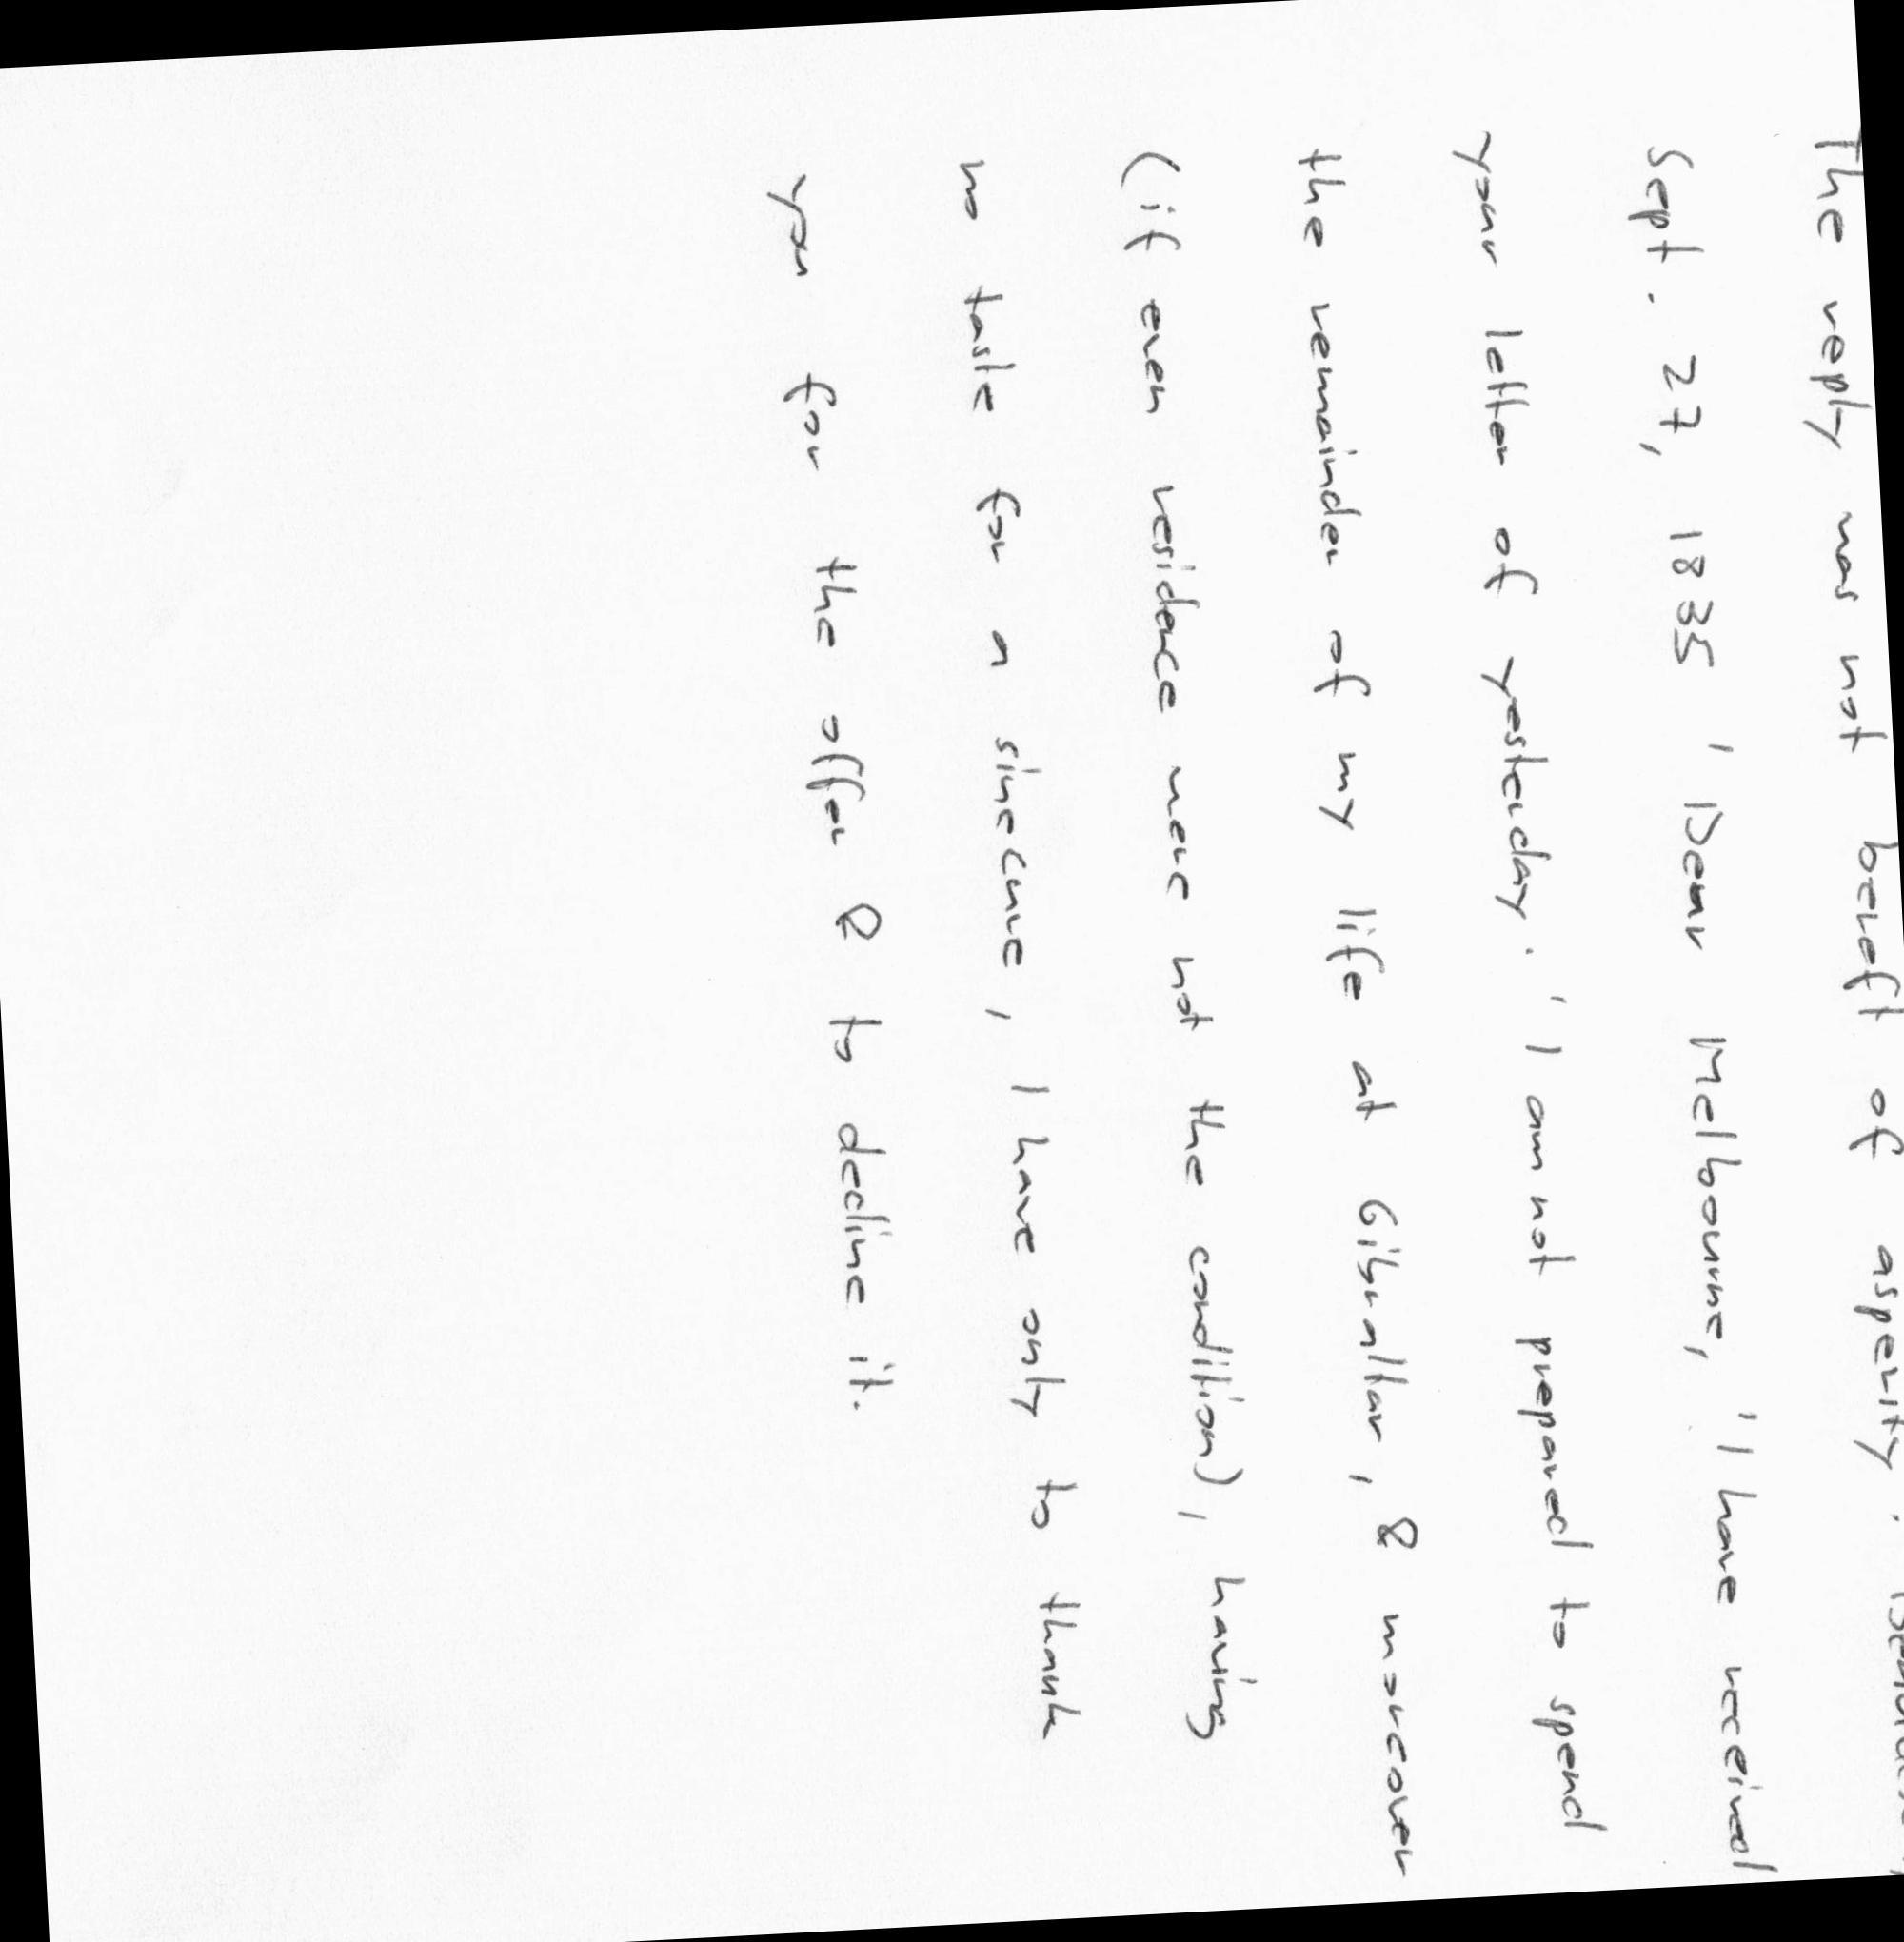 The reply was not bereft of asperity.
Sept. 27, 1835 ' Dear Melbourne, 'I have received
your letter of yesterday. 'I am not prepared to spend
the remainder of my life at Gibraltar, & moreover
(if even residence were not the condition), having
no taste for a sinecure, I have only to thank
you for the offer & to decline it.